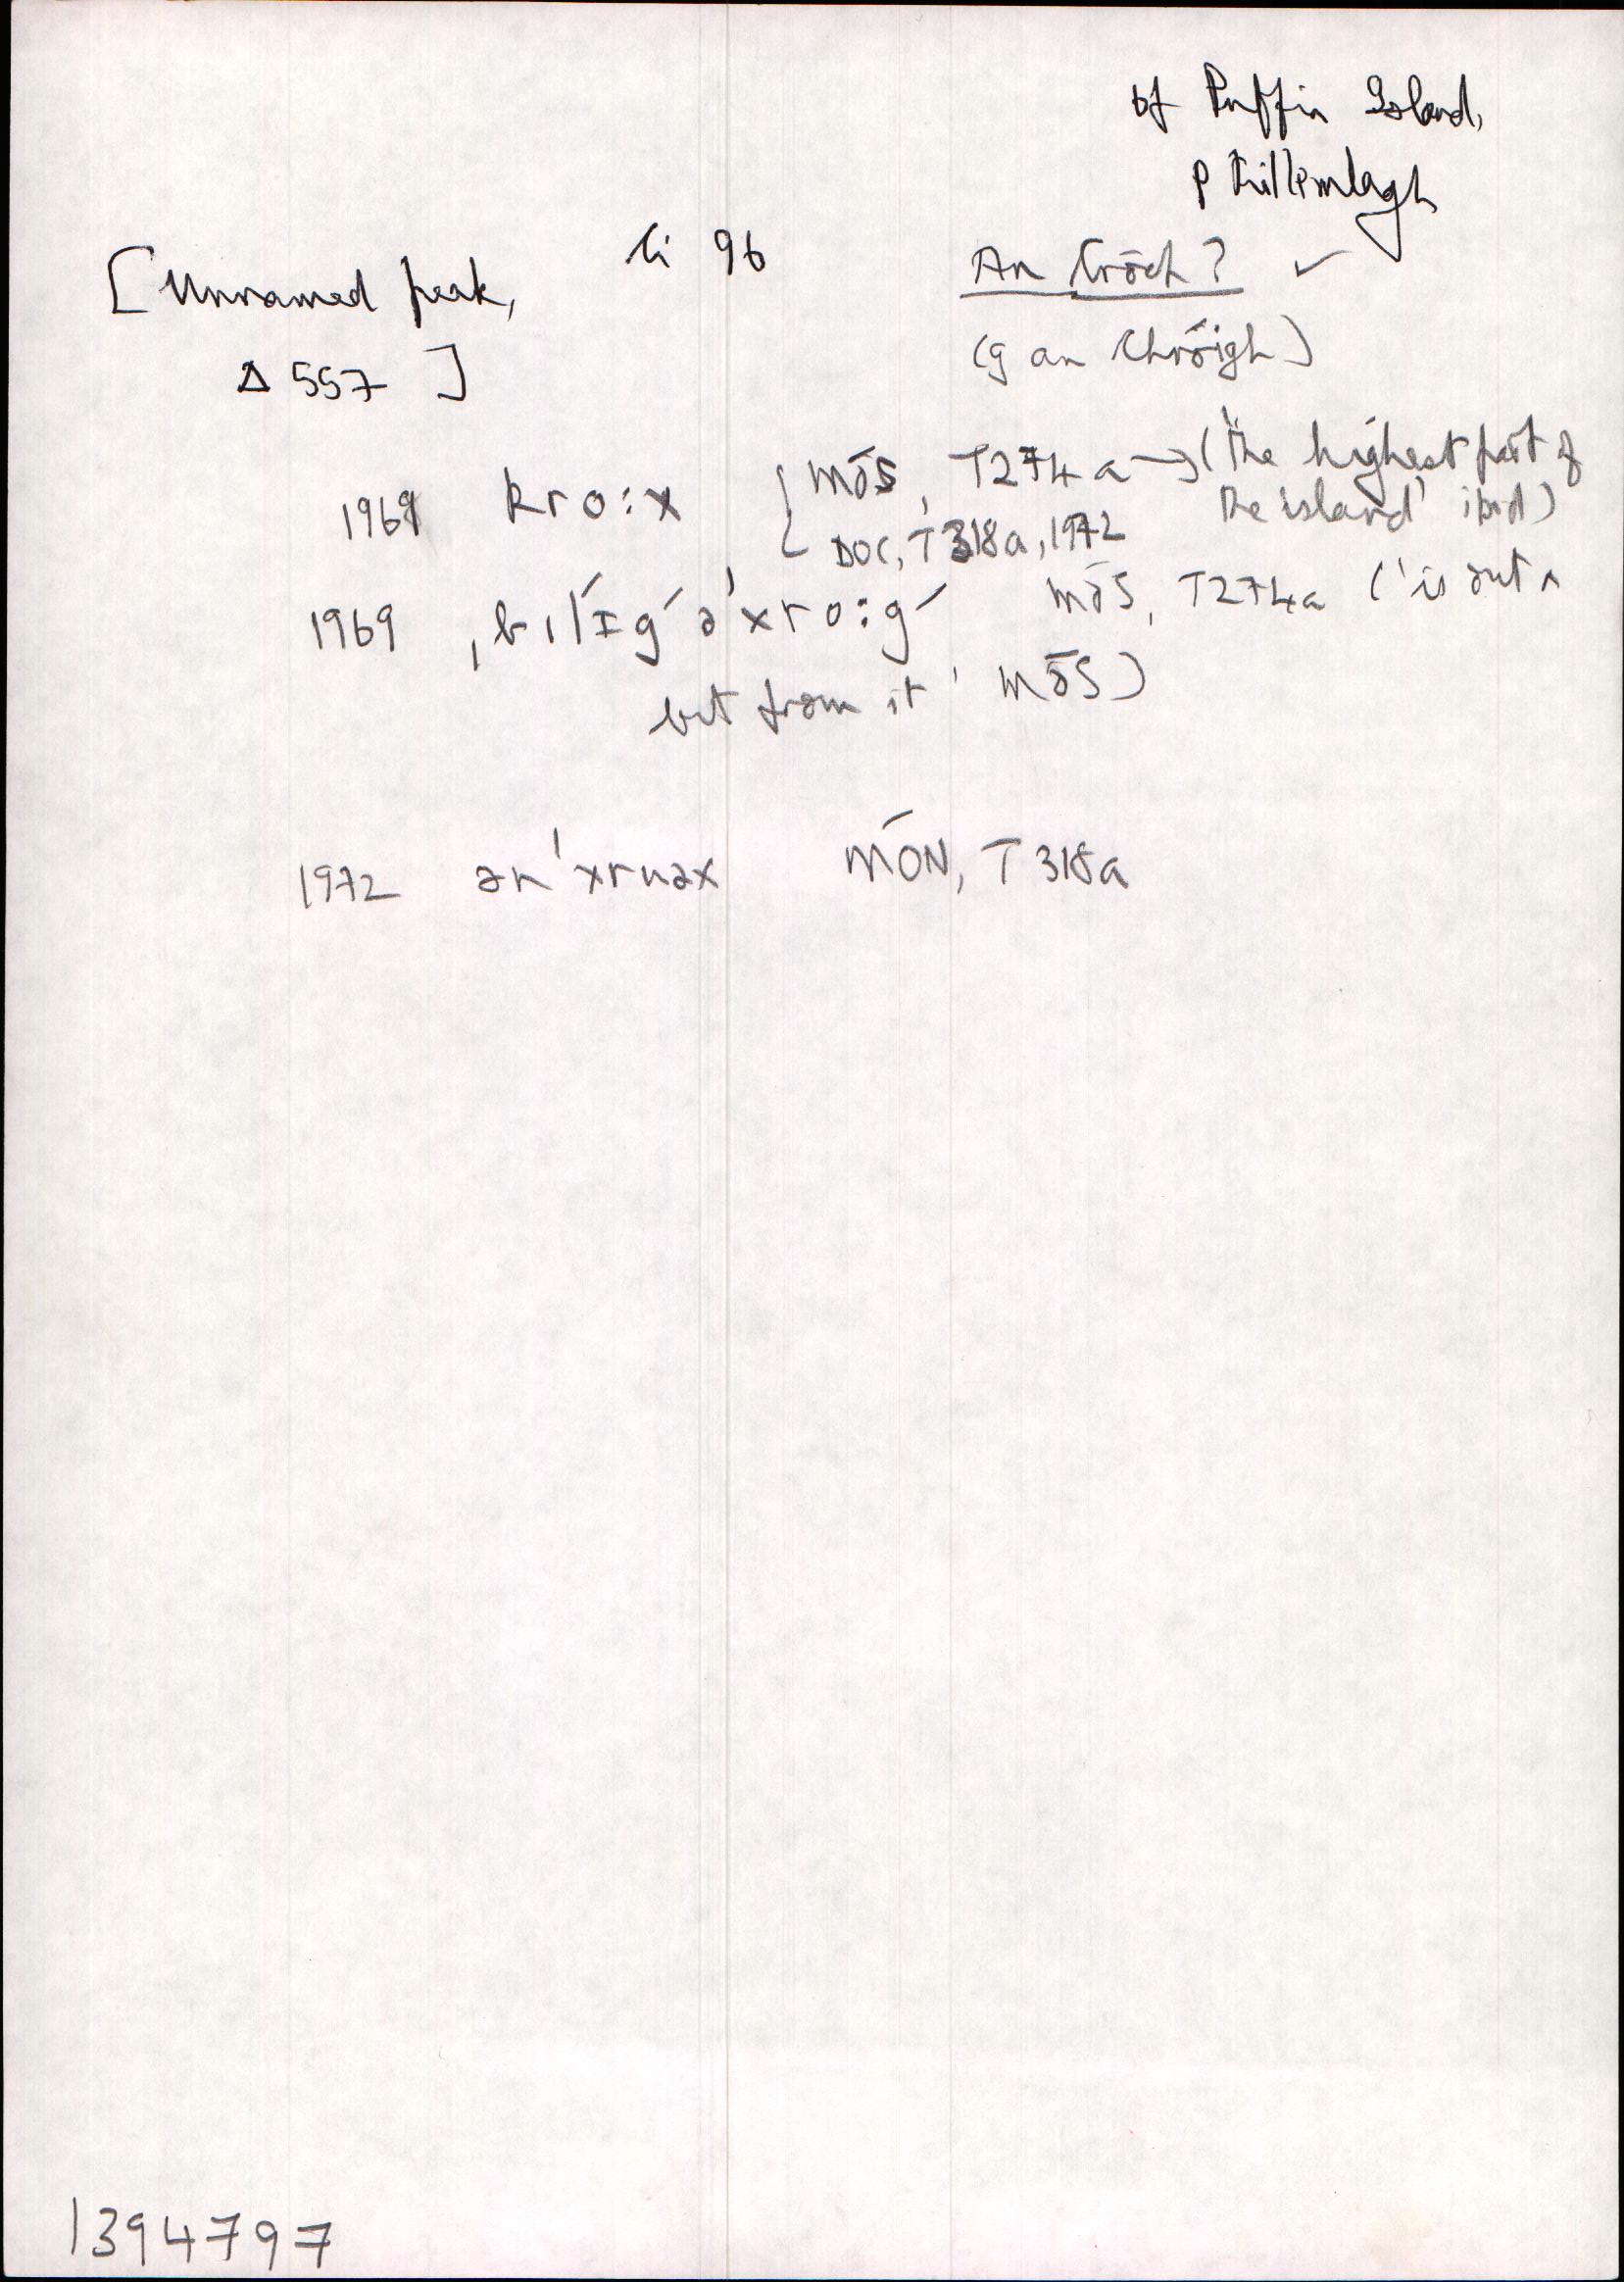 of Puffin Island,
p Killemlagh
[Unnamed peak, li 96 An Cróch? ✓
Δ 557 ] (g an Chróigh)
1969 kro:x { MÓS, T274a → ('the highest part of
DOC, T318a, 1972 the island' ibid)
1969 ˌbɩlˊɪgˊ əˈxro:gˊ MÓS, T274a ('is out a
bit from it' MÓS)
1972 ənˈxruəx MÓN, T318a
1394797